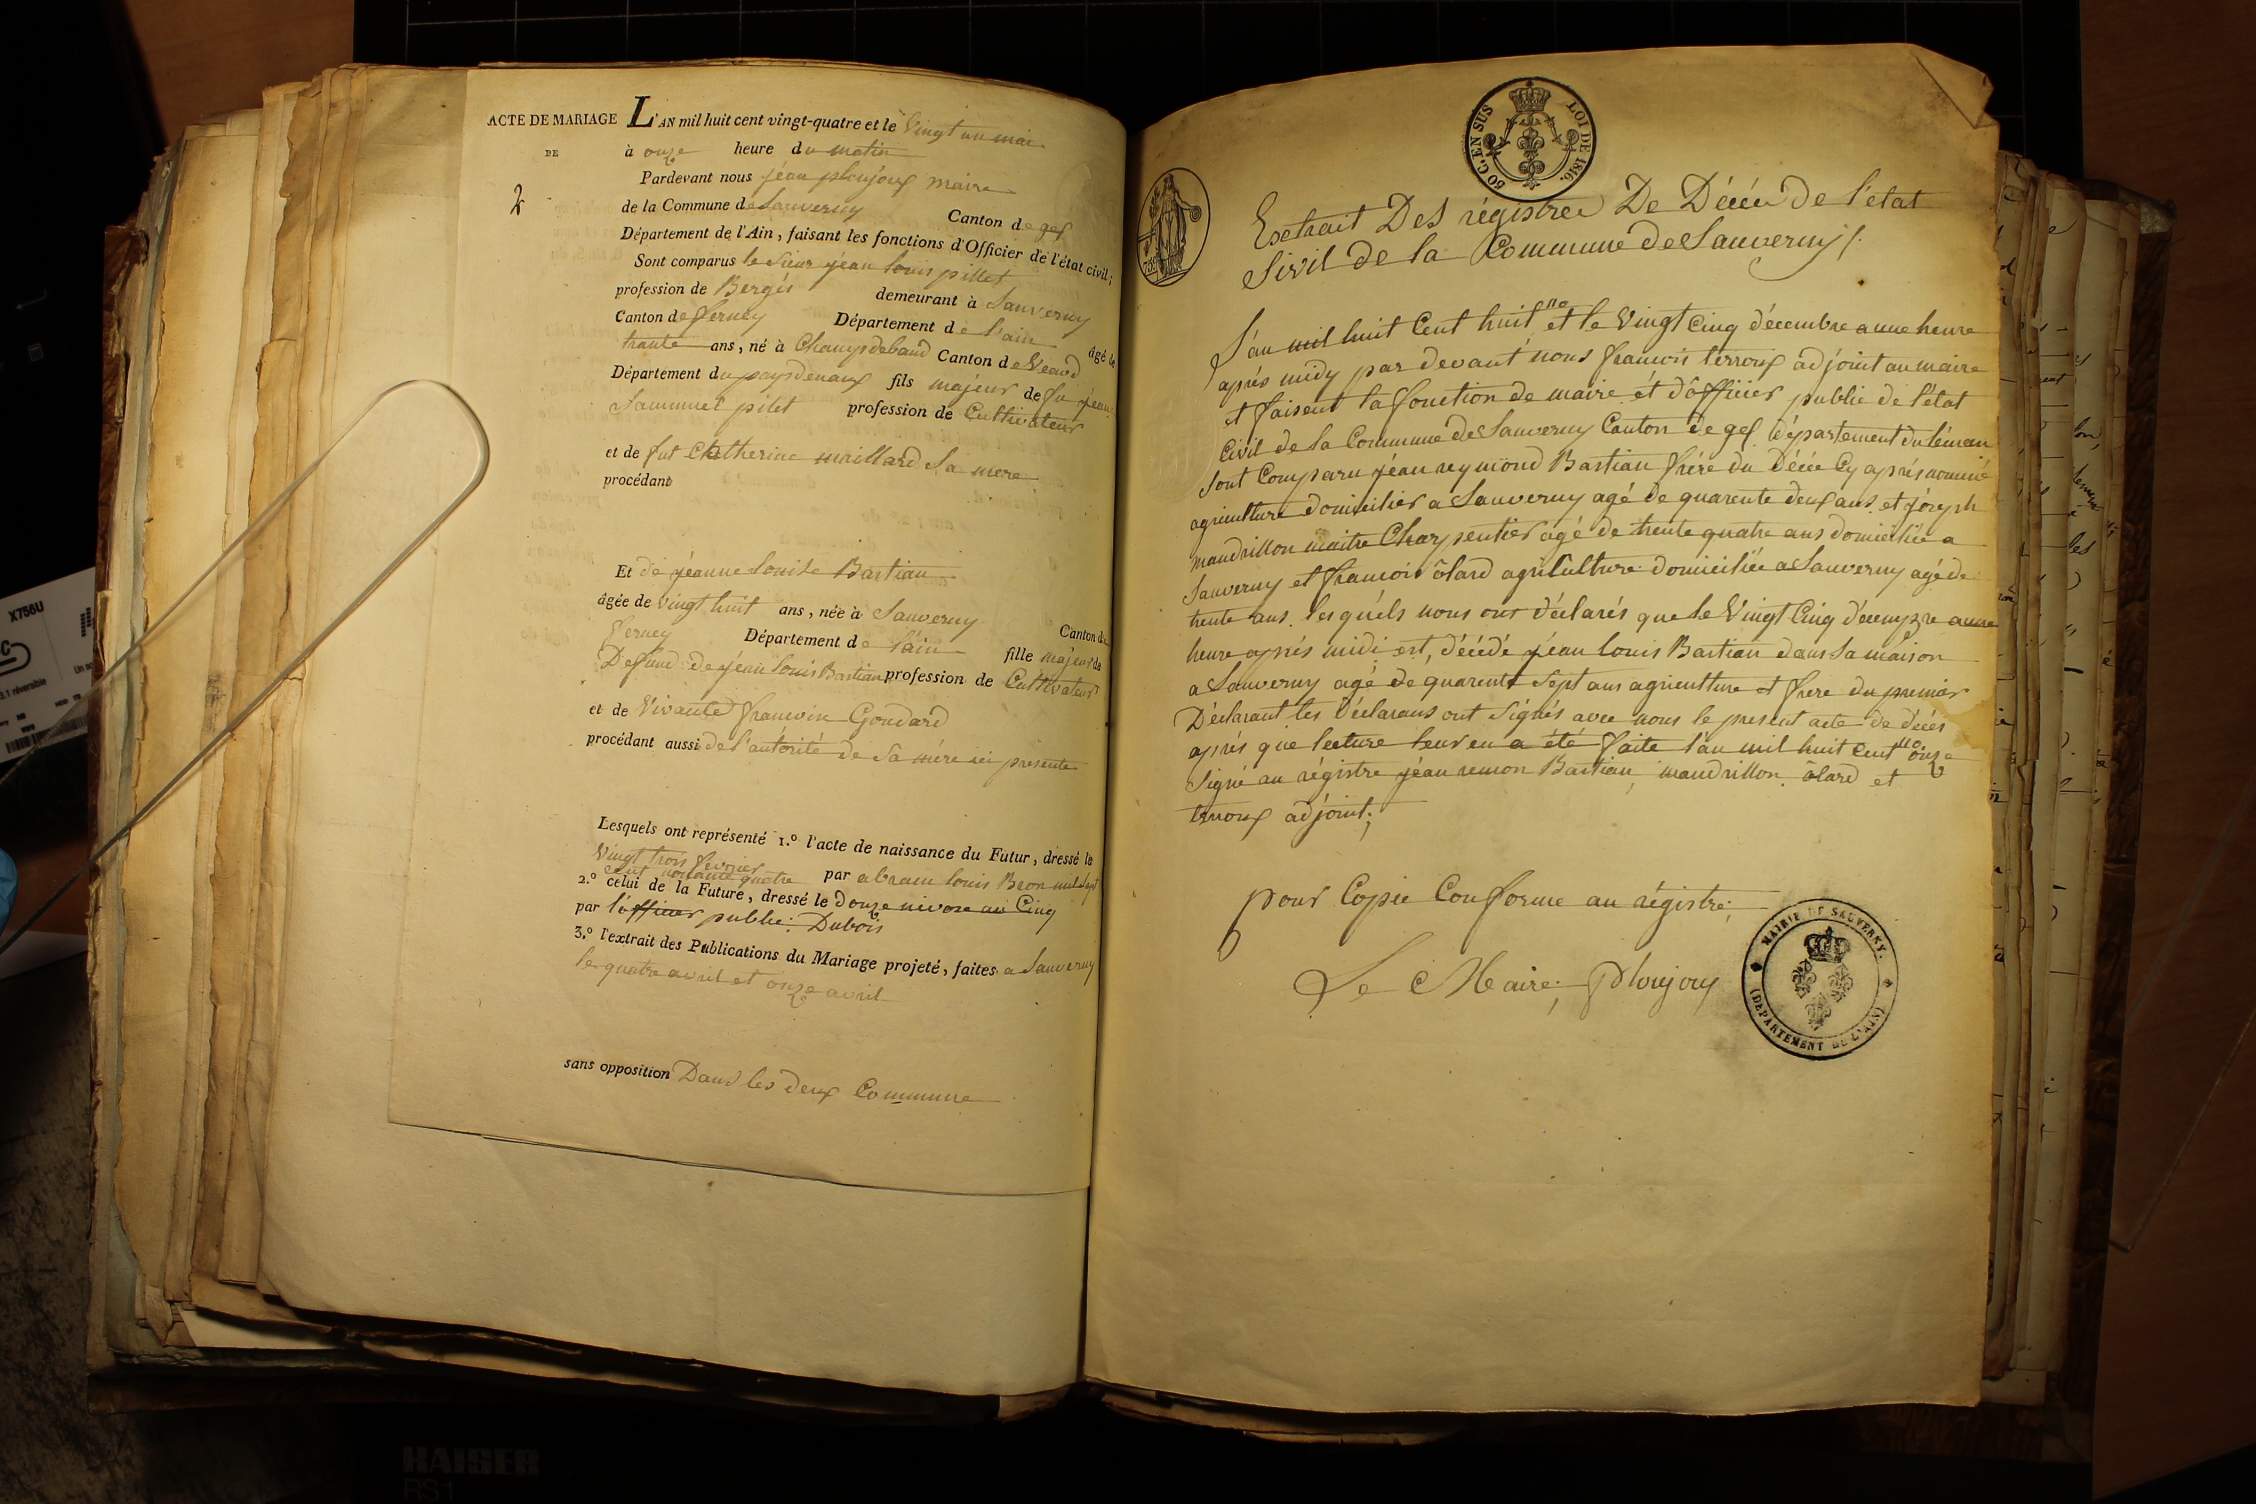 ACTE DE MARIAGE L'AN mil huit cent vingt-quatre et le vingt un mai
DE à onze heure du matin
Pardevant nous jéan ploujoux maire
2 de la Commune de Sauverny Canton de gex
Département de l'Ain, faisant les fonctions d'Officier de l'état civil;
Sont comparus le sieur jéan louis pillet
profession de Bergés demeurant à Sauverny
Canton de ferney Département de l'ain âgé de
trante ans, né à Canton de Véaud
Département du fils majeur de fu jéan
Sammuel pilet profession de Cultivateur
et de fut Catherine maillard sa mere
procédant
Et de jéanne louise Bastian
âgée de vingt huit ans, née à Sauverny Canton de
ferney Département de l'ain fille majeur de
Défund de jéan louis Bastian profession de Cultivateur
et de Vivante Goudard
procédant aussi de l'autorité de sa mére ici presente
Lesquels ont représenté 1.º l'acte de naissance du Futur, dressé le
vingt trois fevrier par abram louis Bron mil sept
cent nonante quatre
2.º celui de la Future, dressé le Douze nivose an Cinq
par l'officier public: Dubois
3.º l'extrait des Publications du Mariage projeté, faites a Sauverny
le quatre avril et onze avril
sans opposition Dans les deux Commune
50 C. EN SUS LOI DE 1816.
Exctrait Des régistre De Décée De l'état
Sivil de la Commune de Sauverny /.
L'an mil huit Cent huit et le vingt cinq décembre a une heure
aprés midy par devant nous francois terroux adjoint au maire
et faisent la fonction de maire et d'officier public de l'état
Civil de la Commune de Sauverny Canton de gex département du léman
sont Comparu jéan reymond Bastian frére du Décée Cy aprés nommé
agriculture domicilier a Sauverny agé de quarente deux ans et joseph
mandrillon maitre Charpentier agé de trente quatre ans domiciliée a
Sauverny et francois ôlard agriculture domiciliée a Sauverny agé de
trente ans. lesquéls nous ont déclarés que le vingt Cinq décembre a une
heure aprés midi est, décédé jéan louis Bastian dans sa maison
a Sauverny agé de quarente sept ans agriculture et frere du premier
Déclarant les déclarans ont signés avec nous le present acte de décés
aprés que lecture leur en a été faite l'an mil huit cent onze
signé au régistre jéan remon Bastian, mandrillon. ôlard et
terroux adjoint;
pour Copie Conforme au régistre;
Le Maire; Ploujoux
MAIRIE DE SAUVERNY.
(DEPARTEMENT DE L'AIN)
X756U
3.1 réversible
KAISER
RS1